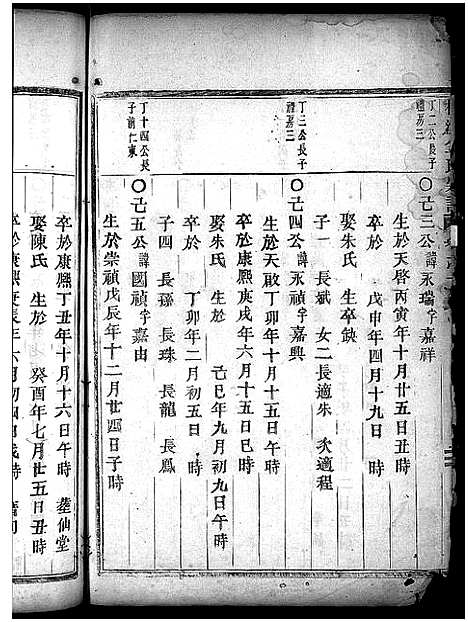 丁二公長子
禮房三
〇己三公諱永瑞字嘉祥
生於天啓丙寅年十月廿五日丑時
卒於 戊申年四月十九日 時
娶朱氏 生卒缺
子一 長斌 女二長適朱 次適程
丁三公長子
禮房三
〇己四公諱永禎字嘉興
生於天啟丁卯年十二月十五日丑時
卒於康熙庚戌年六月十五日巳時
娶朱氏 生於 己巳年九月初九日午時
卒於 丁卯年二月初五日 時
子四 長孫 長珠 長龍 長鳳
丁十四公長
子前仁東
〇己五公諱國禎字嘉由
生於崇禎戊辰年十二月廿四日子時
卒於康熙丁丑年十月十六日午時 塟仙堂
娶陳氏 生於 癸酉年七月廿五日丑時
卒於康熙 辰年六月初四日戌時